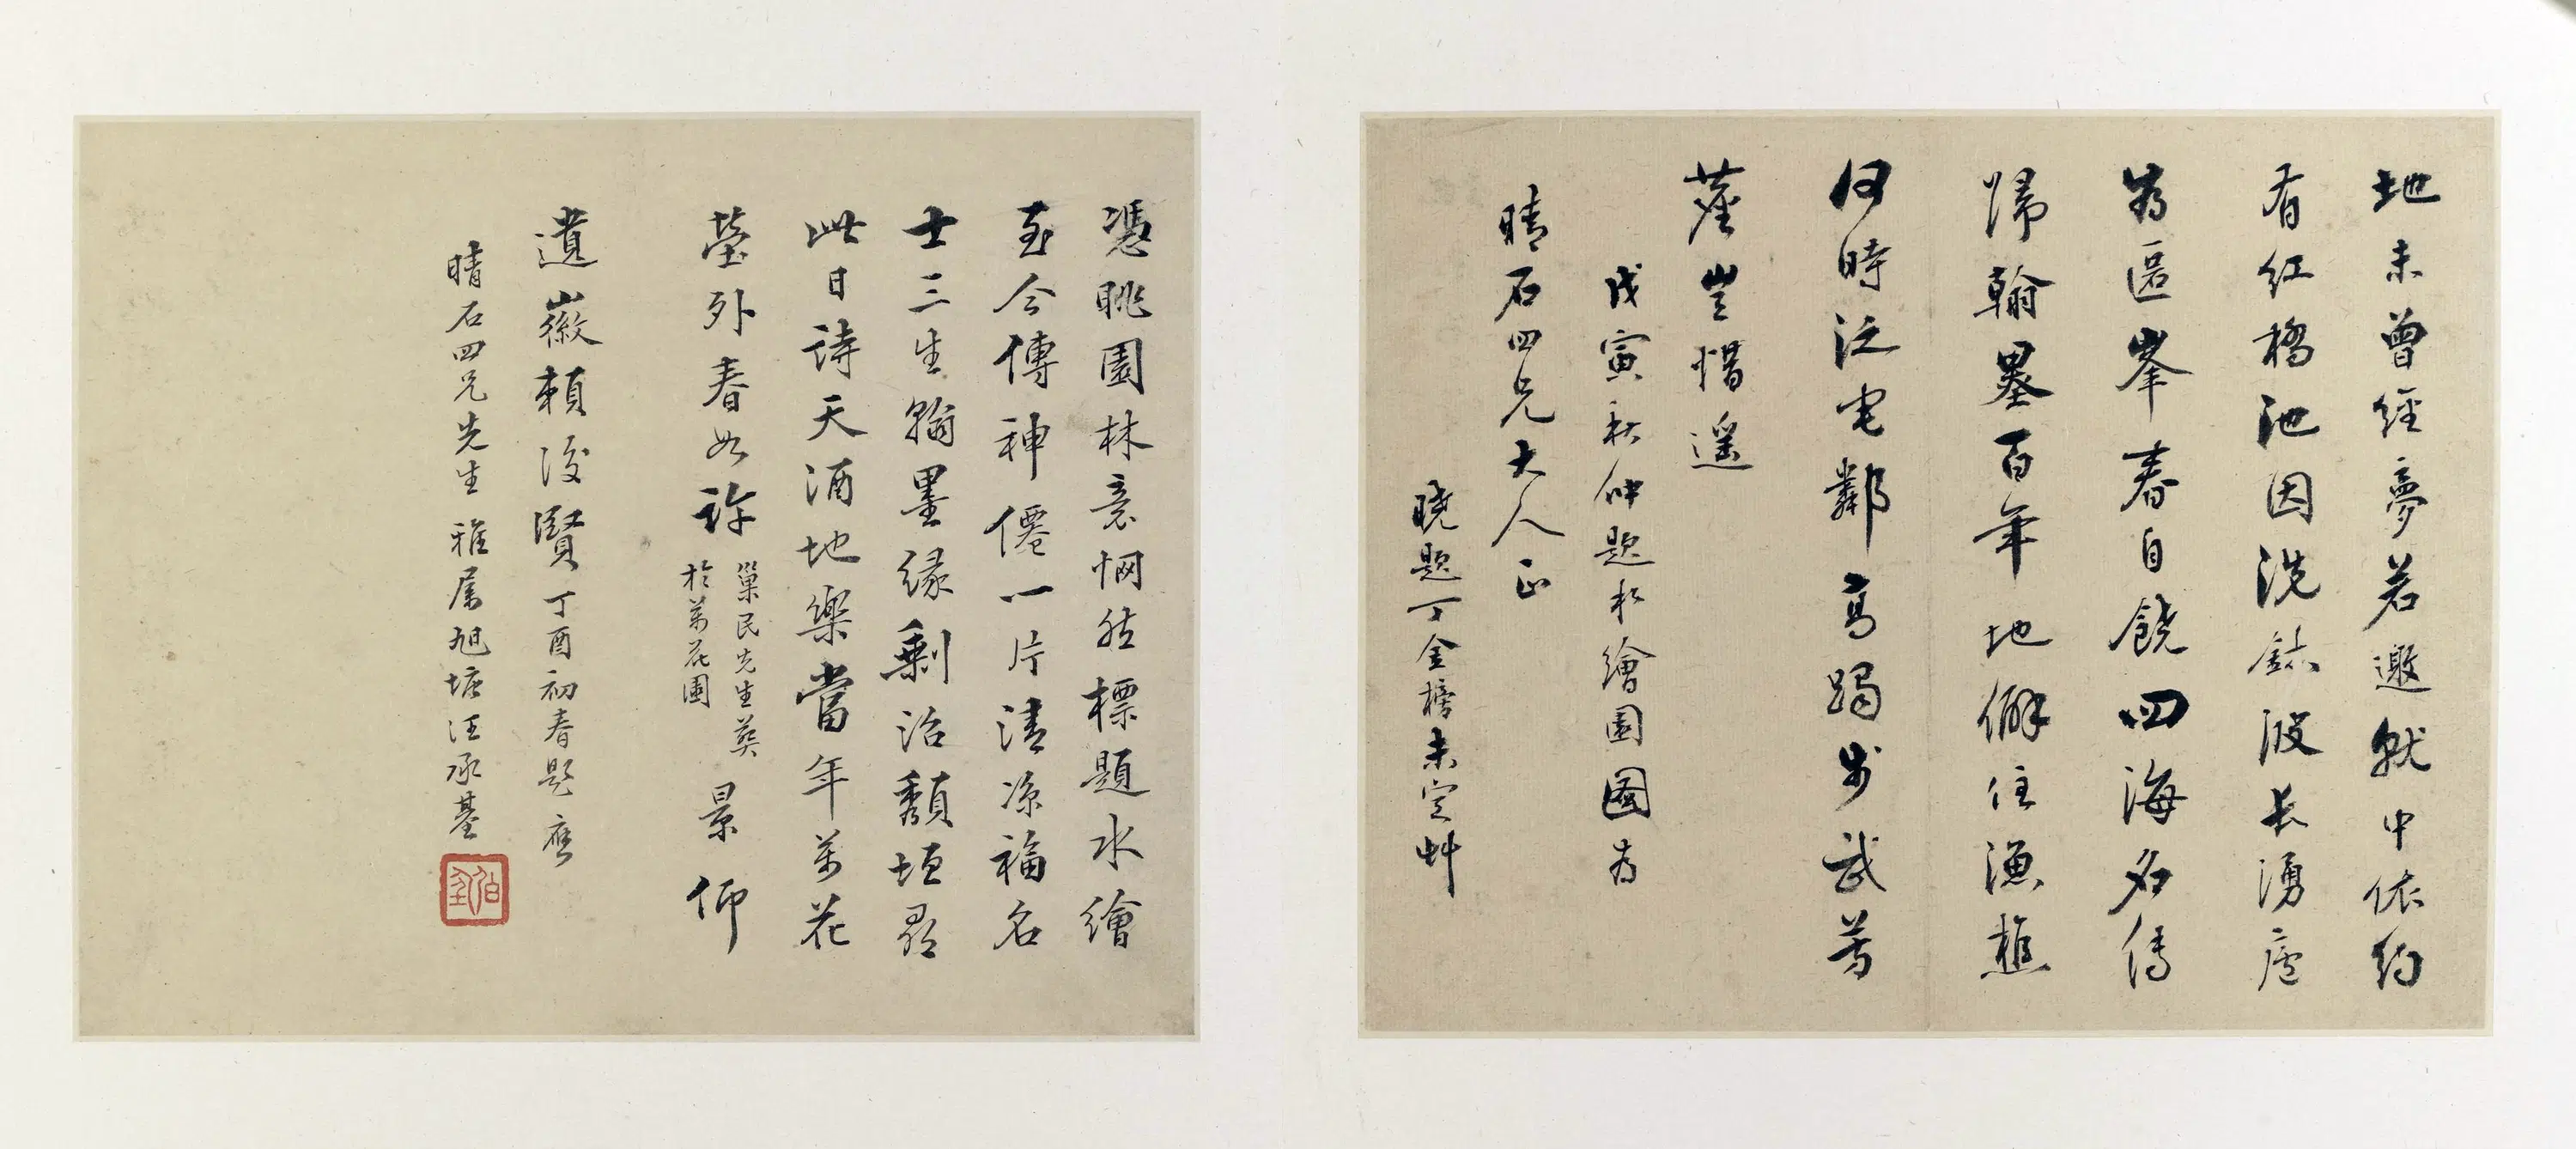 地未曾經夢若邀就中依約
有紅橋池因洗鉢波長湧廬
爲區峯春自饒四海名傳
歸翰墨百年地僻住漁樵
何時泛宅鄰高躅步武芳
塵豈惜遥
戊寅秋仲題水繪園圖爲
晴石四兄大人正
曉題丁金榜未定艸
憑眺園林意惘然標題水繪
至今傳神僊一片清凉福名
士三生翰墨緣剩治頹垣尋
此日詩天酒地樂當年萬花
塋外春如許
巢民先生葬
於萬花園
景仰
遺徽賴後賢丁酉初春題應
晴石四兄先生雅属旭塘汪承基